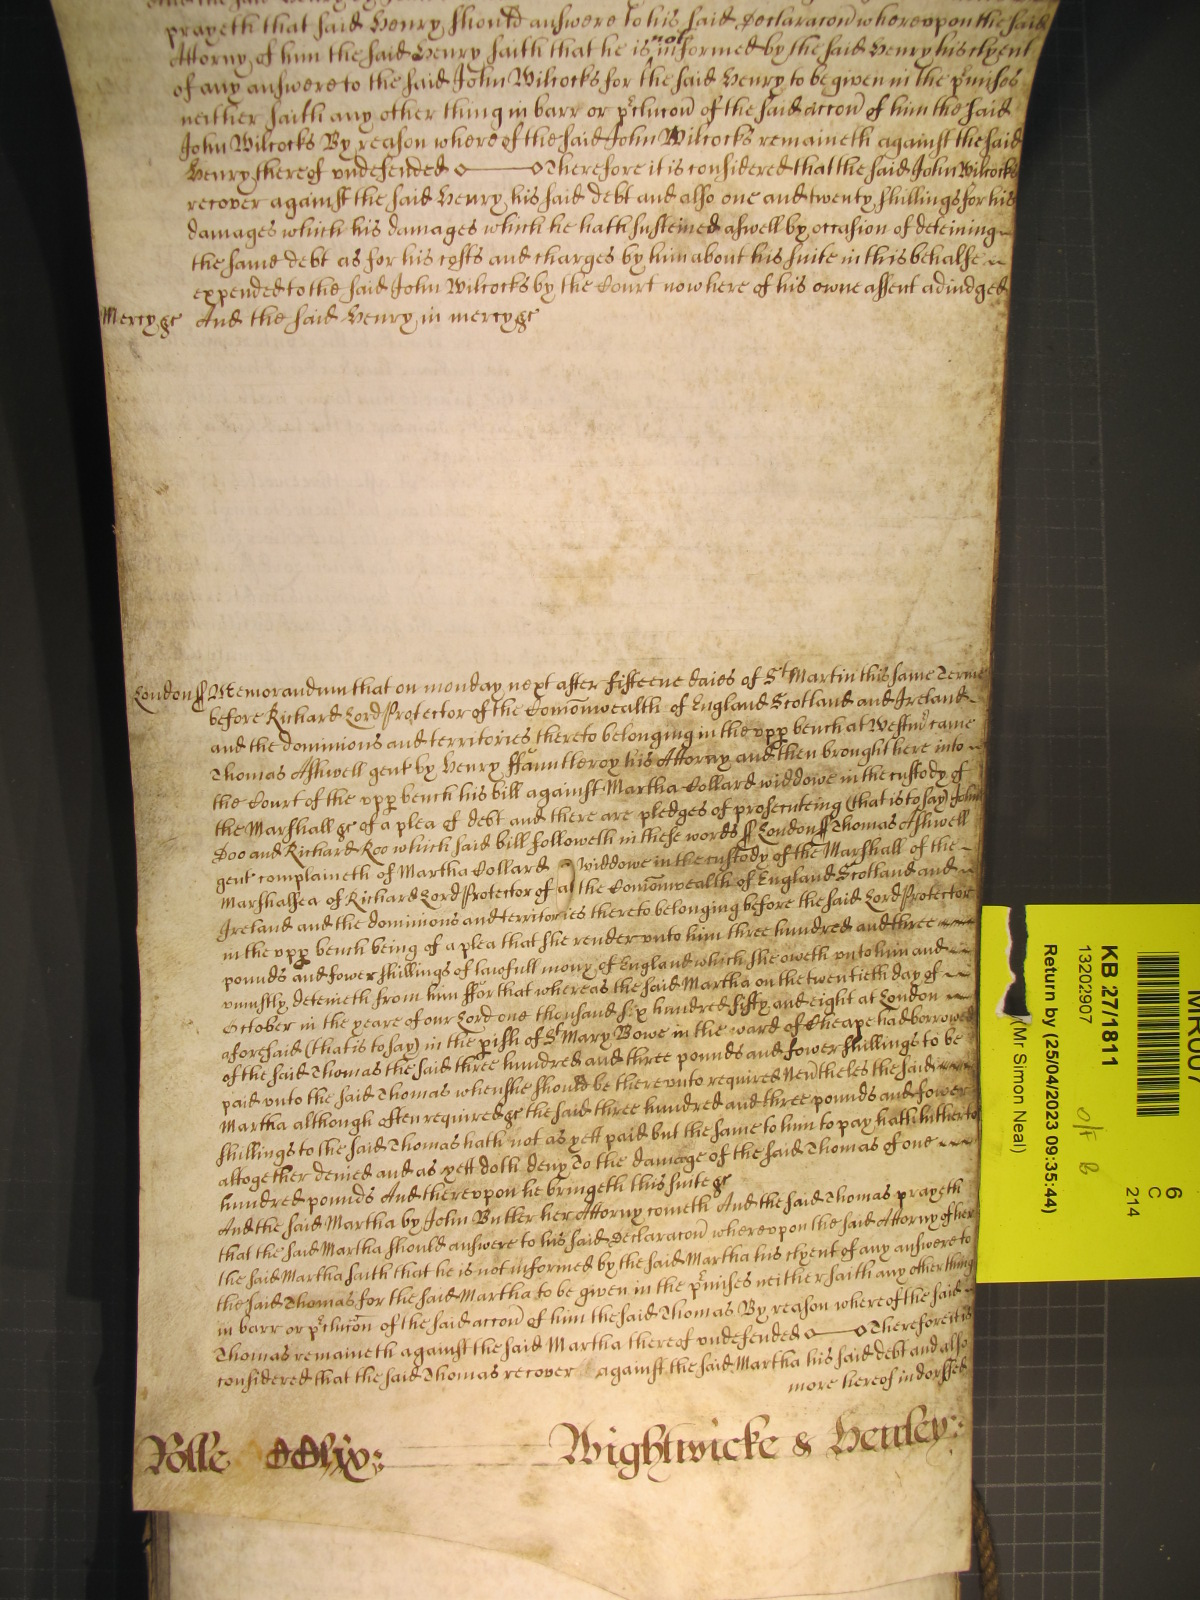 prayeth that said Henry should answere to his said Declaracon whereupon the said
Attorny of him the said Henry saith that he is not informed by the said Henry his clyent
of any answere to the said John Wilcocks for the said Henry to be given in the p'mises
neither saith any other thing in barr or p'clucon of the said accon of him the said
John Wilcocks By reason whereof the said John Wilcocks remaineth against the said
Henry thereof undefended Therefore it is considered that the said John Wilcocks
recover against the said Henry his said debt and also one and twenty shillings for his
damages which his damages which he hath susteined aswell by occasion of deteining
the same debt as for his costs and charges by him about his suite in this behalfe
expended to the said John Wilcocks by the Court now here of his owne assent adiudged
Mercy &c And the said Henry in mercy &c
London ss Memorandum that on monday next after fifteene daies of St Martin this same Terme
before Richard Lord Protector of the Comonwealth of England Scotland and Ireland
and the dominions and territories thereto belonging in the upp bench at Westmr came
Thomas Ashwell gent by Henry ffauntleroy his Attorny and then brought here into
the Court of the upp bench his bill against Martha Collard widdowe in the custody of
the Marshall &c of a plea of debt and there are pledges of prosecuteing (that is to say) John
Doo and Richard Roo which said bill followeth in these words ss London ss Thomas Ashwell
gent complaineth of Martha Collard widdowe in the custody of the Marshall of the
Marshalsea of Richard Lord Protector of the Comonwealth of England Scotland and
Ireland and the dominions and territories thereto belonging before the said Lord Protector
in the upp bench being of a plea that she render unto him three hundred and three
pounds and fower shillings of lawfull mony of England which she oweth unto him and
uniustly deteineth from him ffor that whereas the said Martha on the twentieth day of
October in the yeare of our Lord one thousand six hundred fifty and eight at London
aforesaid (that is to say) in the pish of St Mary Bowe in the ward of Cheape had borrowed
of the said Thomas the said three hundred and three pounds and fower shillings to be
paid unto the said Thomas when she should be thereunto required Neutheles the said
Martha although often required &c the said three hundred and three pounds and fower
shillings to the said Thomas hath not as yett paid but the same to him to pay hath hitherto
altogether denied and as yett doth deny To the damage of the said Thomas of one
hundred pounds And thereupon he bringeth this suite &c
And the said Martha by John Butler her Attorny cometh And the said Thomas prayeth
that the said Martha should answere to his said Declaracon whereupon the said Attorny of her
the said Martha saith that he is not informed by the said Martha his clyent of any answere to
the said Thomas for the said Martha to be given in the p'mises neither saith any other thing
in barr or p'clucon of the said accon of him the said Thomas By reason whereof the said
Thomas remaineth against the said Martha thereof undefended Therefore it is
considered that the said Thomas recover against the said Martha his said debt and also
more hereof indorssed
Rolle Wightwicke & Hettley
6
C
214
KB 27/1811
13202907
Return by (25/04/2023 09:35:44)
(Mr Simon Neal)